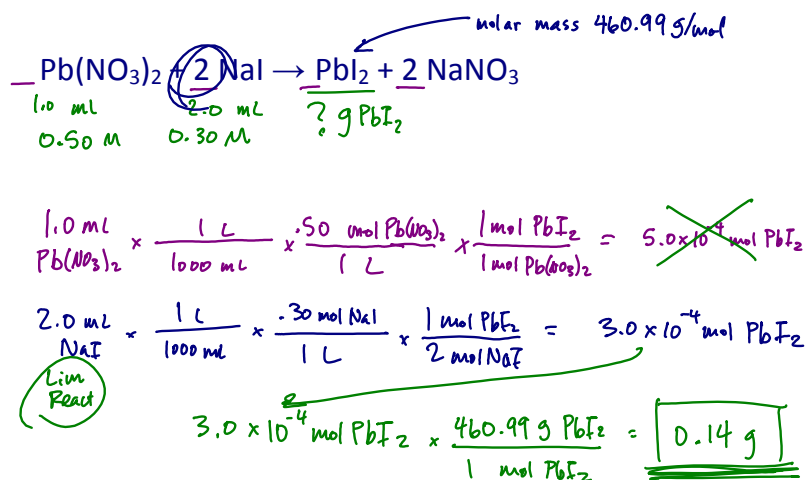 molar mass 460.99 g/mol
_ Pb(NO₃)₂ + 2 NaI → PbI₂ + 2 NaNO₃
1.0 mL 2.0 mL ? g PbI₂
0.50 M 0.30 M
1.0 mL Pb(NO₃)₂ × 1 L / 1000 mL × .50 mol Pb(NO₃)₂ / 1 L × 1 mol PbI₂ / 1 mol Pb(NO₃)₂ = 5.0×10⁻⁴ mol PbI₂
2.0 mL NaI × 1 L / 1000 mL × .30 mol NaI / 1 L × 1 mol PbI₂ / 2 mol NaI = 3.0×10⁻⁴ mol PbI₂
Lim
React
3.0×10⁻⁴ mol PbI₂ × 460.99 g PbI₂ / 1 mol PbI₂ = 0.14 g